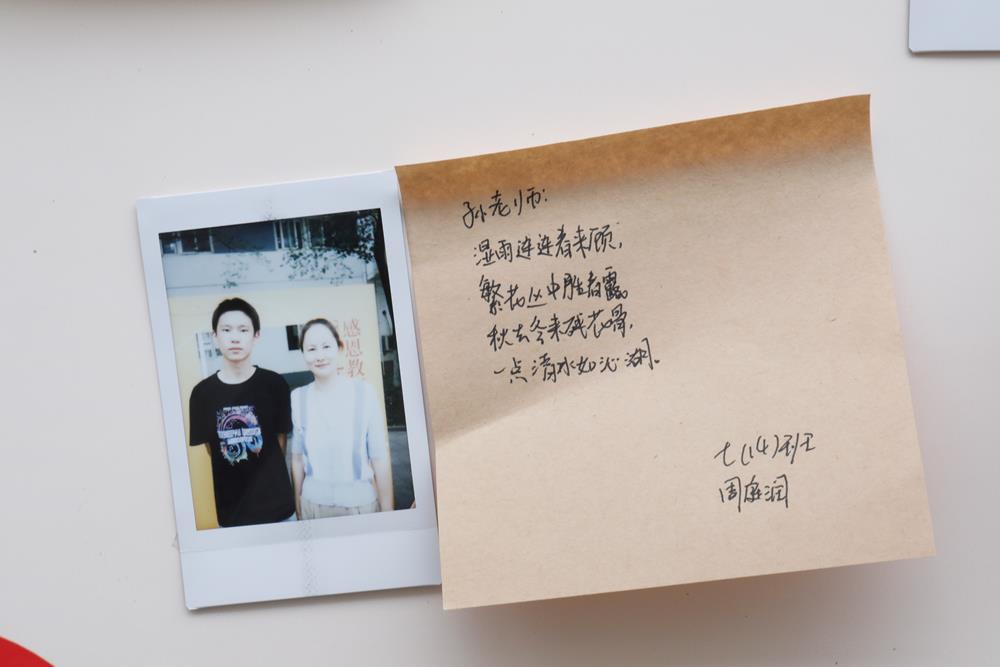 孙老师:
湿雨连连春来顾,
繁花丛中胜春露。
秋去冬来残花骨,
一点清水如沁湖。
七(14)班
周庭润
感恩教